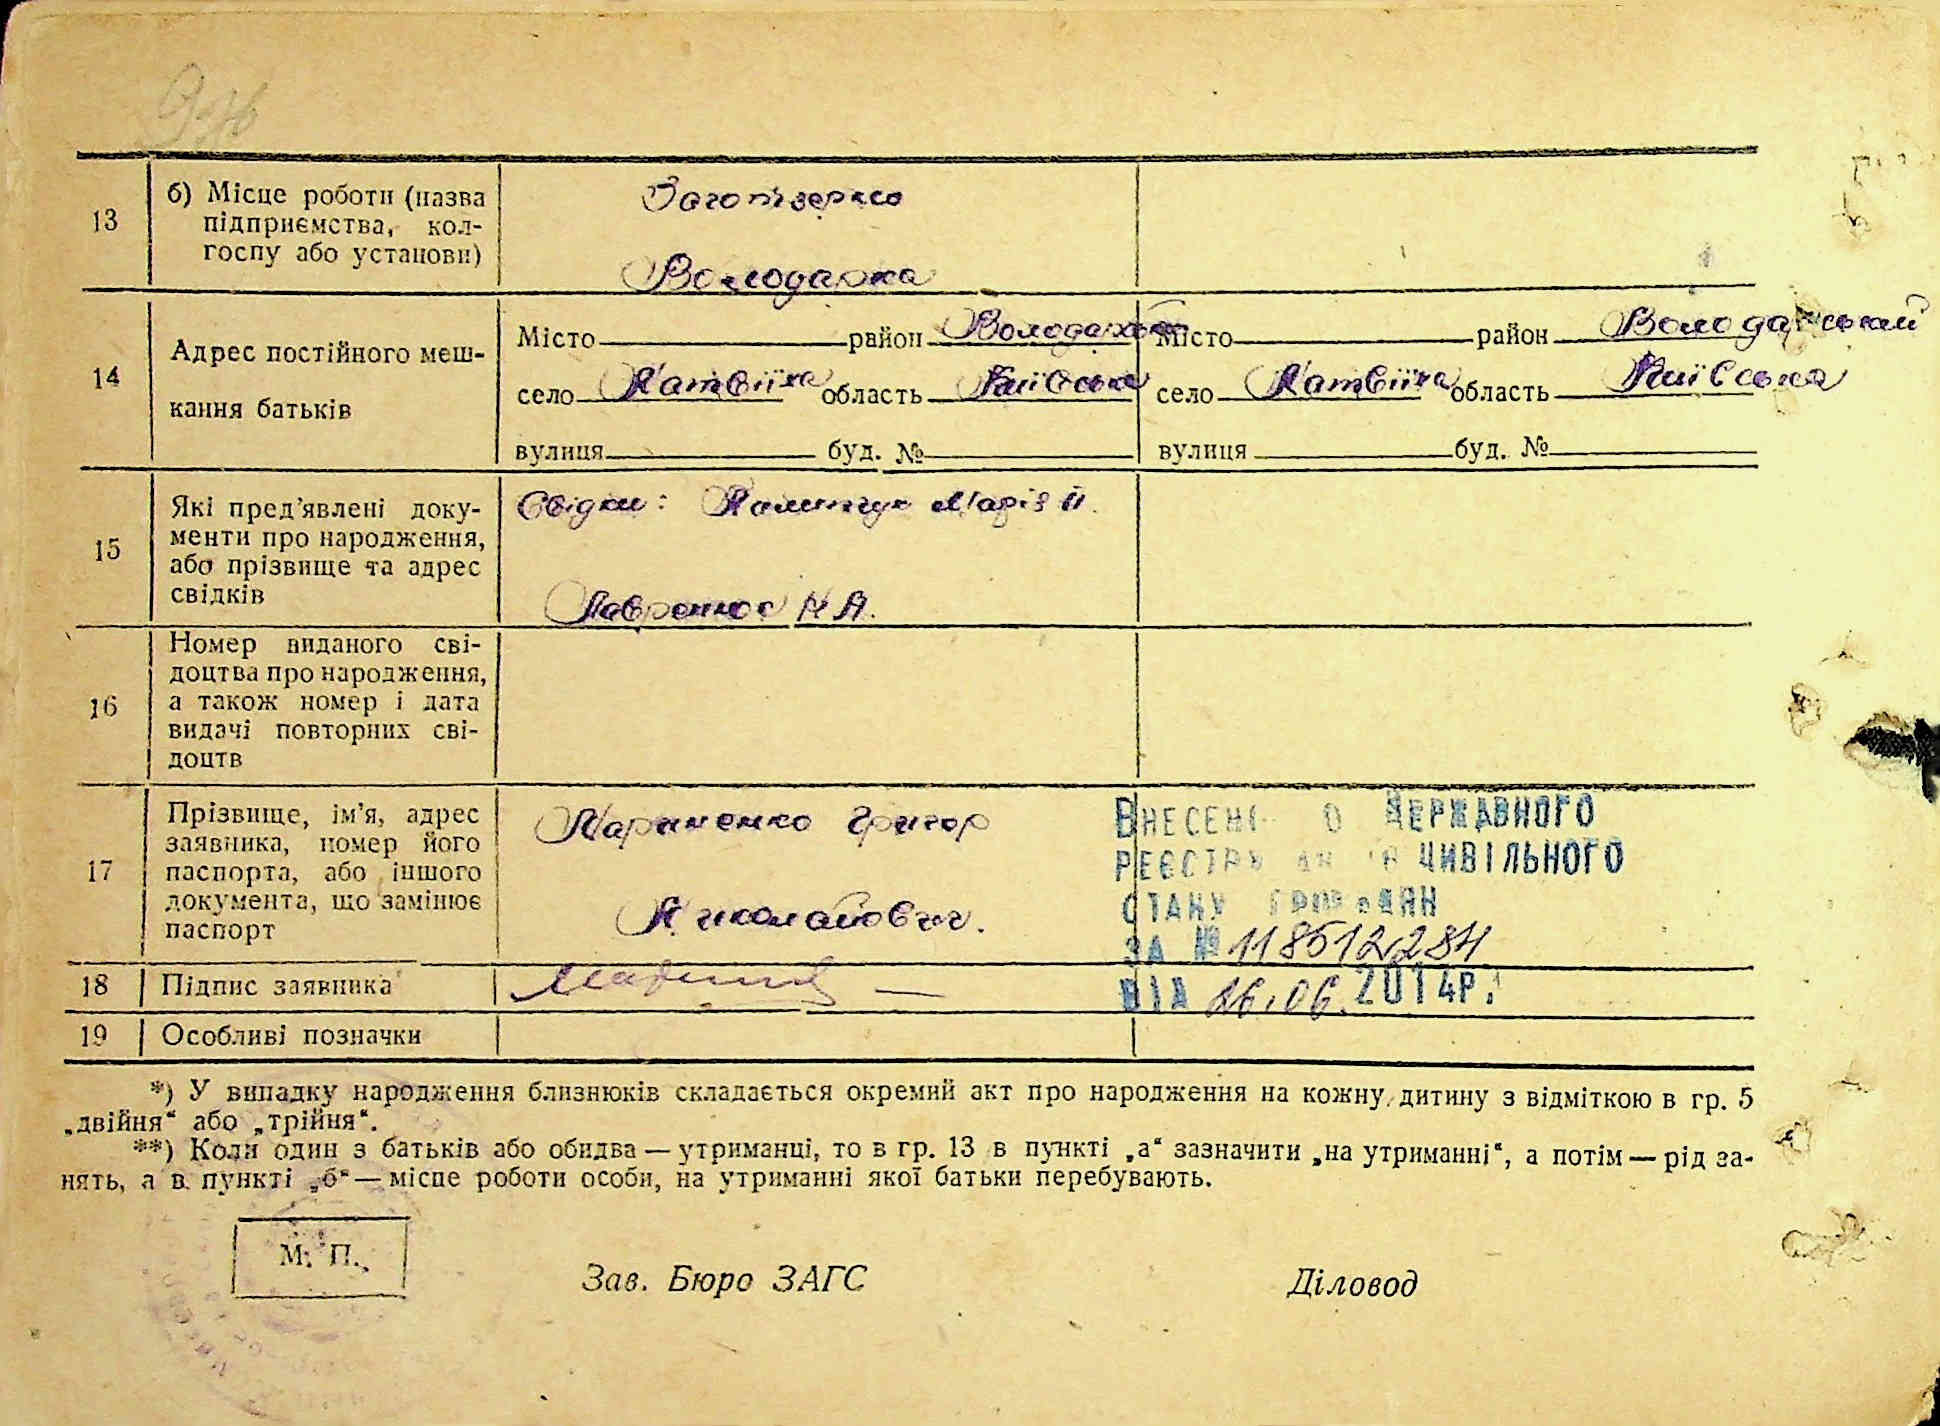 13
б) Місце роботи (назва
підприємства, кол-
госпу або установи)
Заготзерно
Володарка
14
Адрес постійного меш-
кання батьків
Місто район Володарськ
село Матвіїха область Київська
вулиця буд. №
Місто район Володарський
село Матвіїха область Київська
вулиця буд. №
15
Які пред'явлені доку-
менти про народження,
або прізвище та адрес
свідків
Свідки: Марія Й.
16
Номер виданого сві-
доцтва про народження,
а також номер і дата
видачі повторних сві-
доцтв
17
Прізвище, ім'я, адрес
заявника, номер його
паспорта, або іншого
документа, що замінює
паспорт
Мариненко Григор
Николайович.
ВНЕСЕНО ДО ДЕРЖАВНОГО
РЕЄСТРУ АКТІВ ЦИВІЛЬНОГО
СТАНУ ГРОМАДЯН
ЗА № 118512284
ВІД 26.06.2014Р.
18
Підпис заявника
19
Особливі позначки
*) У випадку народження близнюків складається окремий акт про народження на кожну дитину з відміткою в гр. 5
„двійня“ або „трійня“.
**) Коли один з батьків або обидва — утриманці, то в гр. 13 в пункті „а“ зазначити „на утриманні“, а потім — рід за-
нять, а в пункті „б“ — місце роботи особи, на утриманні якої батьки перебувають.
М. П.
Зав. Бюро ЗАГС
Діловод